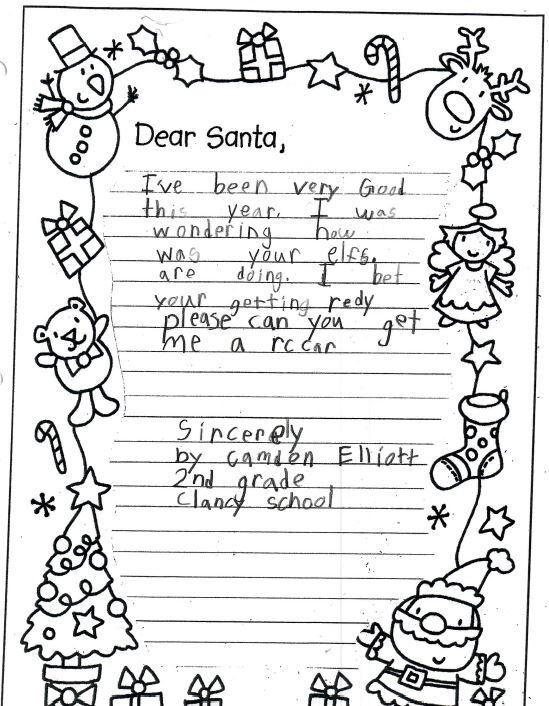 Dear Santa,
I've been very Good
this year. I was
wondering how
was your elfs.
are doing. I bet
your getting redy
please can you get
me a rc car
Sincerely
by Camden Elliott
2nd grade
Clancy school